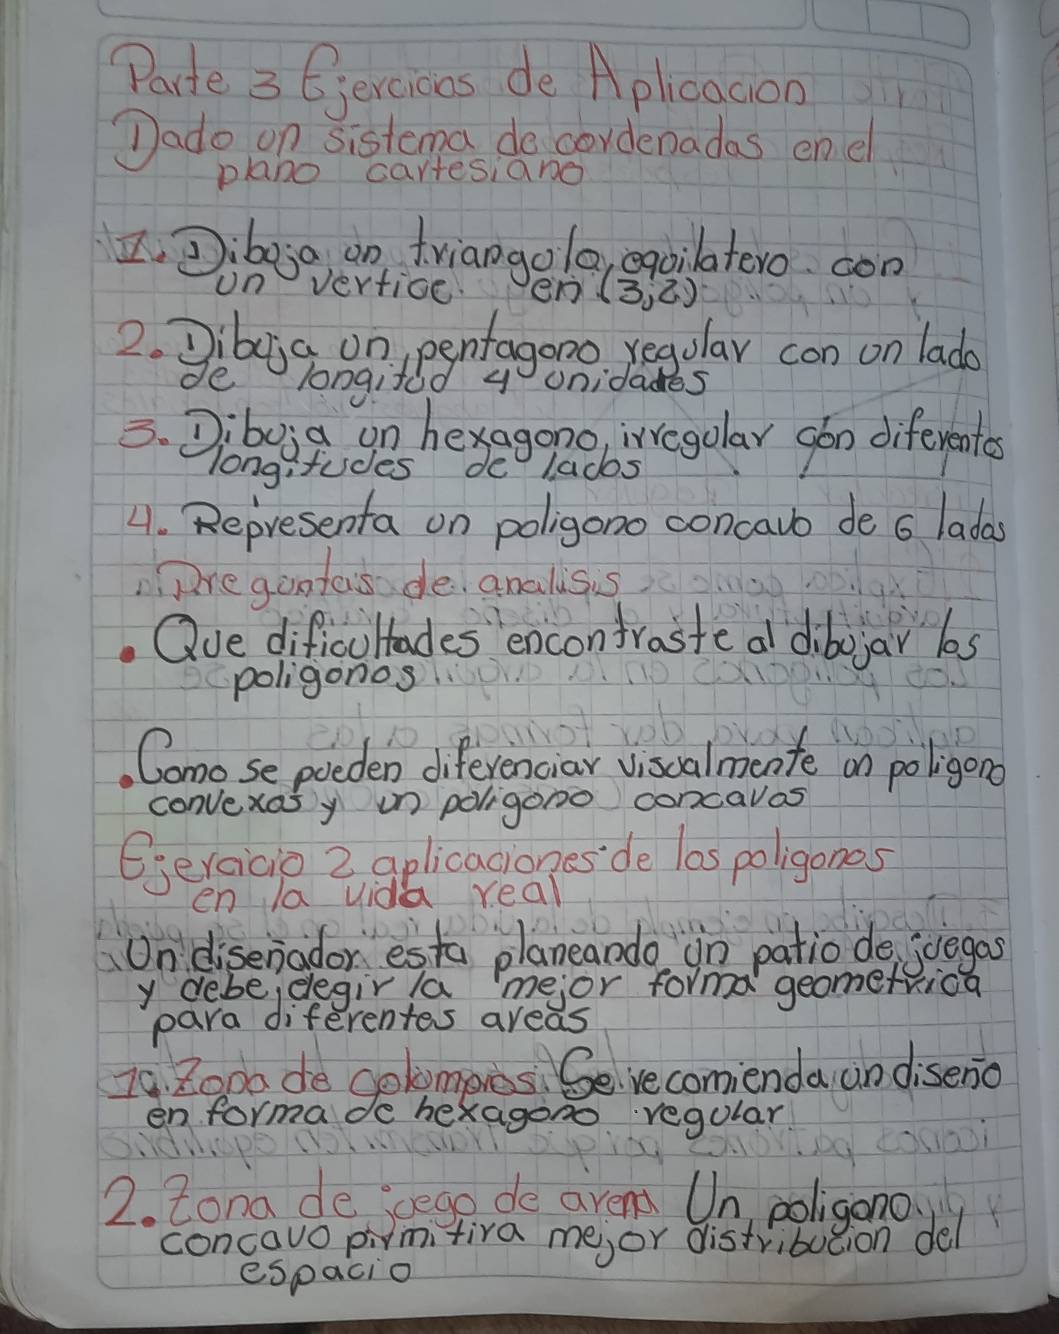 Parte 3 Ejercicios de Aplicacion
Dado on sistema de cordenadas en el
plano cartesiano
1. Diboja on triangolo, eqoilatero con
un vertice en (3,2)
2. Dibuja un pentagono regolar con on lado
de longitud 4 unidades
3. Dibuja un hexagono irregolar con diferentes
longitudes de lados
4. Representa on poligono concavo de 6 lados
Pregontas de analisis
• Que dificoltades encontraste al dibojar los
poligonos
• Como se poeden diferenciar viscalmente on poligono
convexas y un poligono concavos
Ejercicio 2 aplicaciones de los poligonos
en la vida real
Un diseñador esta planeando un patio de joegos
y debe elegir la mejor forma geometrica
para diferentes areas
1a. Zona de colompios Se recomienda un diseño
en forma de hexagono regular
2. Zona de joego de arena Un poligono
concavo pirmitira mejor distribucion del
espacio